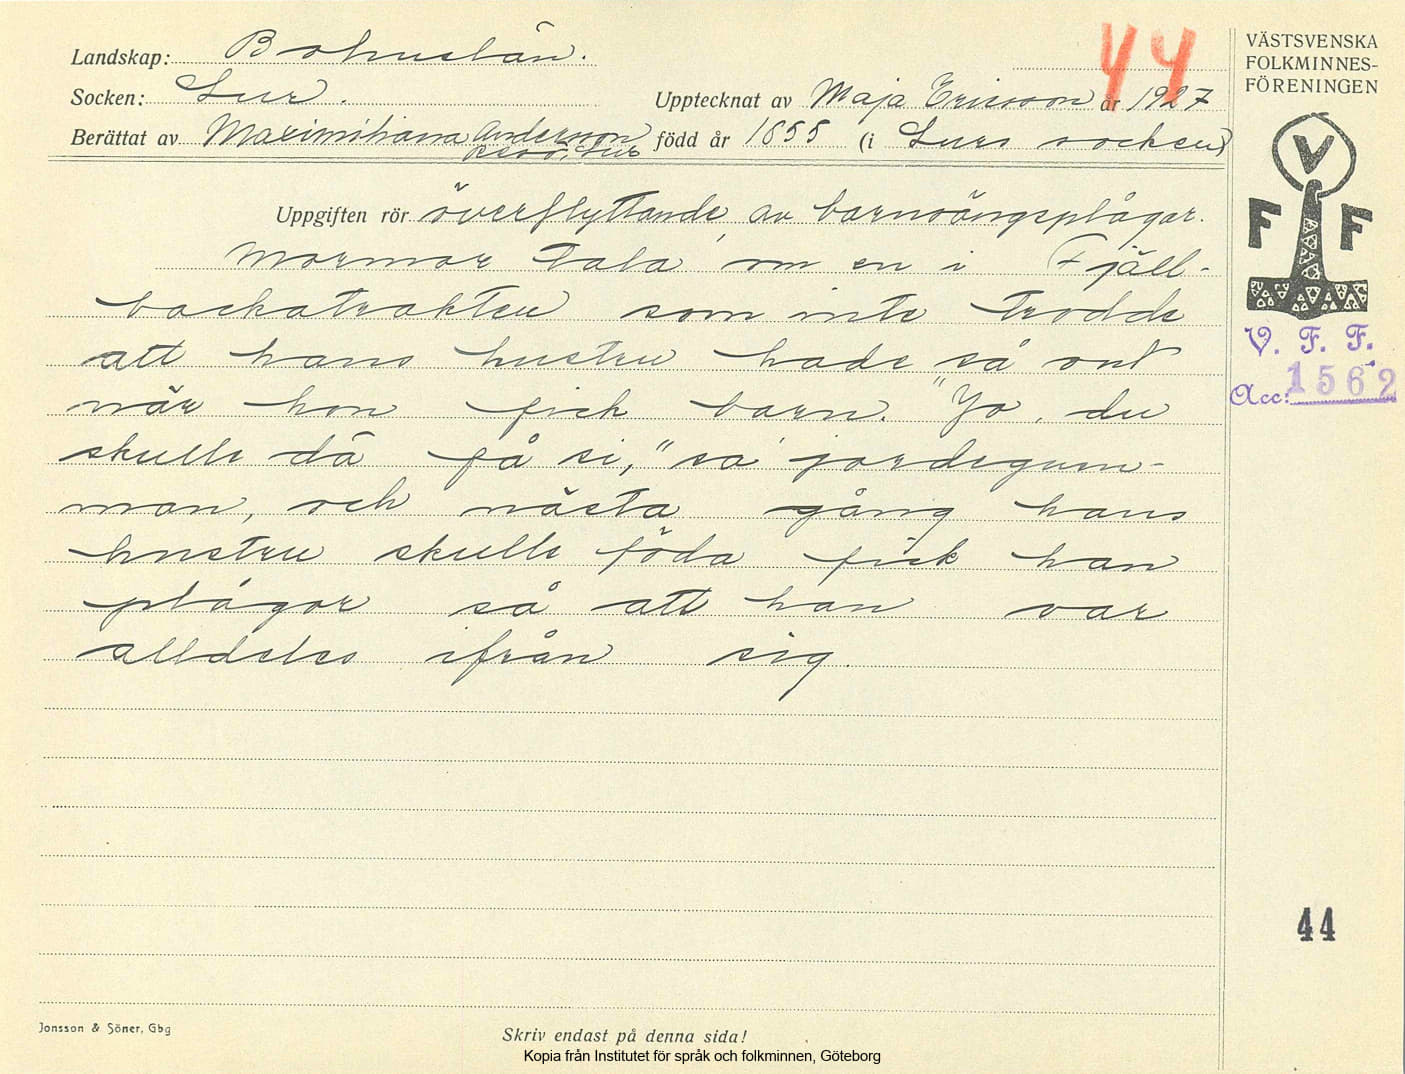 Landskap: Bohuslän.
44
VÄSTSVENSKA
FOLKMINNES-
FÖRENINGEN
Socken: Lur.
Upptecknat av Maja Ericsson år 1927
Berättat av Maximiliana Andersson
Resö, Lur
född år 1855 (i Lurs socken)
V
F F
Uppgiften rör överflyttande av barnsängsplågor.
Mormor tala' om en i Fjäll-
backatrakten som inte trodde
att hans hustru hade så ont
när hon fick barn. "Jo, du
skulle då få si," sa' jordegum-
man, och nästa gång hans
hustru skulle föda fick han
plågor så att han var
alldeles ifrån sig.
V. F. F.
Acc: 1562
44
Jonsson & Söner, Gbg
Skriv endast på denna sida!
Kopia från Institutet för språk och folkminnen, Göteborg